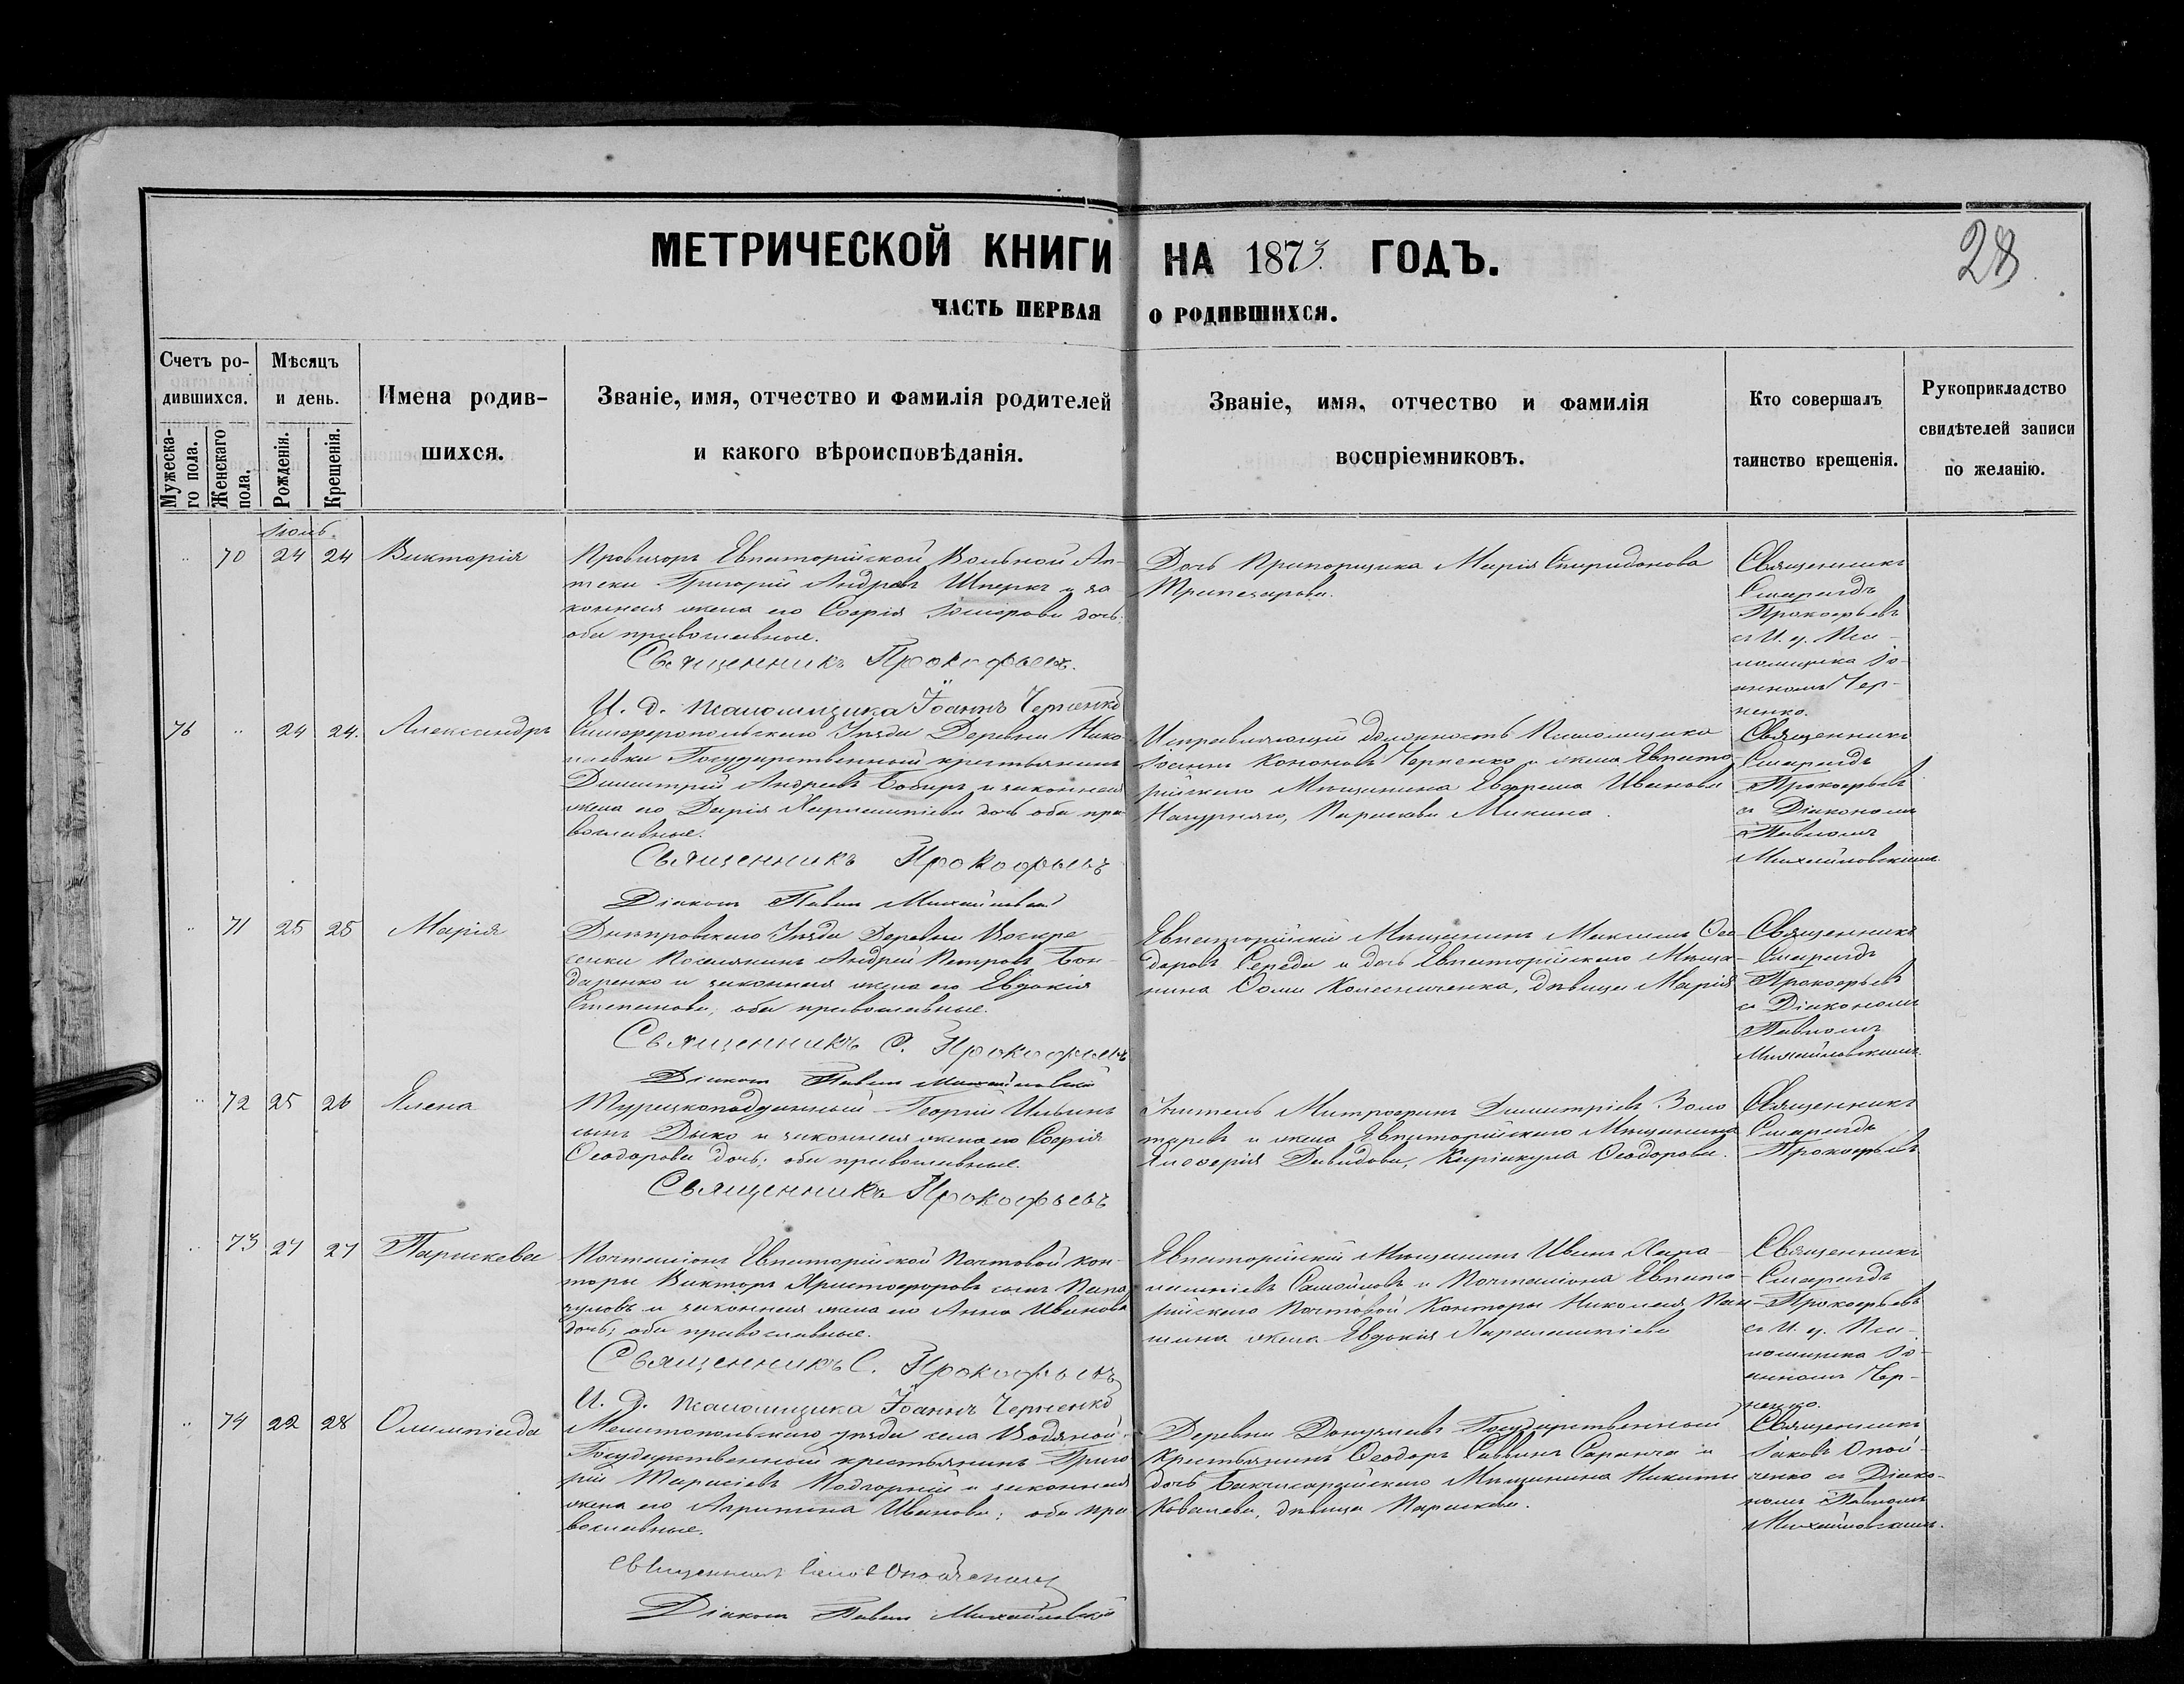 МЕТРИЧЕСКОЙ КНИГИ НА 1873 ГОДЪ.
28
ЧАСТЬ ПЕРВАЯ О РОДИВШИХСЯ.
Счетъ ро-
дившихся.
Мужеска-
го пола.
Женскаго
пола.
Мѣсяцъ
и день.
Рожденія.
Крещенія.
Имена родив-
шихся.
Званіе, имя, отчество и фамилія родителей
и какого вѣроисповѣданія.
Званіе, имя, отчество и фамилія
воспріемниковъ.
Кто совершалъ
таинство крещенія.
Рукоприкладство
свидѣтелей записи
по желанію.
70 24 24 Викторія
Провизоръ Евпаторійской Вольной Ап-
теки Григорій Андреевъ и за
конная жена его Софія дочь;
оба православные.
Священникъ Прокофьевъ.
И. д. псаломщика Іоаннъ Черненко
Дочь Прапорщика Марія Спиридонова
Священникъ
Смарагдъ
Прокофьевъ
съ И. д. Пса-
ломщика Іо-
анномъ Чер-
ненко.
76 24 24. Александръ
Симферопольскаго Уѣзда Деревни Нико-
лаевки Государственный крестьянинъ
Димитрій Андреевъ и законная
жена его Дарія Харлампіева дочь оба пра
вославные.
Священникъ Прокофьевъ
Діаконъ Павелъ Михайловскій
Исправляющій должность Псаломщика
Іоаннъ Кононовъ Черненко и жена Евпато
рійскаго Мѣщанина Ефрема Иванова
Нагурняго, Параскева
Священникъ
Смарагдъ
Прокофьевъ
съ Діакономъ
Павломъ
Михайловскимъ.
71 25 25 Марія
Днѣпровскаго Уѣзда Деревни Воскре-
сенки Поселянинъ Андрей Петровъ Бон-
даренко и законная жена его Евдокія
Степанова; оба православные.
Священникъ С. Прокофьевъ
Діаконъ Павелъ Михайловскій
Евпаторійскій Мѣщанинъ Максимъ Ѳео-
доровъ Середа и дочь Евпаторійскаго Мѣща-
нина Ѳомы Колесниченка, дѣвица Марія
Священникъ
Смарагдъ
Прокофьевъ
съ Діакономъ
Павломъ
Михайловскимъ.
72 25 26 Елена
Турецкоподданный Георгій Ильинъ
сынъ Дыко и законная жена его Софія
Ѳеодорова дочь; оба православные.
Священникъ Прокофьевъ
Митрофанъ Димитріевъ Золо
таревъ и жена Евпаторійскаго Мѣщанина
Давидова, Ѳеодорова.
Священникъ
Смарагдъ
Прокофьевъ
73 27 27 Параскева
Почталіонъ Евпаторійской Почтовой Кон-
торы Викторъ Христофоровъ сынъ
и законная жена его Анна Иванова
дочь; оба православные.
Священникъ С. Прокофьевъ
И. д. псаломщика Іоаннъ Черненко
Евпаторійскій Мѣщанинъ Иванъ Хара-
лампіевъ Самойловъ и Почталіона Евпато-
рійскаго Почтовой Конторы Николая Пан-
шина жена Евдокія Харалампіева
Священникъ
Смарагдъ
Прокофьевъ
съ И. д. Пса-
ломщика Іо-
анномъ Чер-
ненко.
74 22 28 Олимпіада
Мелитопольскаго уѣзда села Водяной
Государственный крестьянинъ Григо
рій Тарасіевъ Подгорній и законная
жена его Агрипина Иванова; оба пра
вославные.
Діаконъ Павелъ Михайловскій
Деревни Донузлавъ Государственный
Крестьянинъ Ѳеодоръ Саввинъ Саранча и
дочь Бахчисарайскаго Мѣщанина Никиты
Ковалева, дѣвица Параскева.
Священникъ
Іаковъ Опой-
ченко съ Діако-
номъ Павломъ
Михайловскимъ.